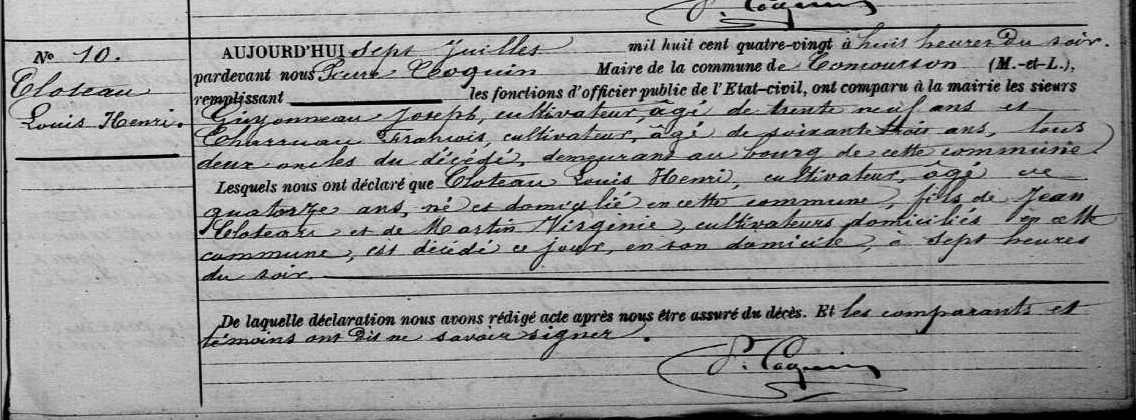 P. Coquin
No 10.
Cloteau
Louis Henri.
AUJOURD'HUI sept Juillet mil huit cent quatre-vingt à huit heures du soir.
pardevant nous Pierre Coquin Maire de la commune de Concourson (M.-et-L.),
remplissant les fonctions d'officier public de l'Etat-civil, ont comparu à la mairie les sieurs
Guyonneau Joseph, cultivateur, âgé de trente neuf ans et
Charruau François, cultivateur, âgé de soixante trois ans, tous
deux oncles du décédé, demeurant au bourg de cette commune.
Lesquels nous ont déclaré que Cloteau Louis Henri, cultivateur, âgé de
quatorze ans, né et domicilié en cette commune, fils de Jean
Cloteau et de Martin Virginie, cultivateurs domiciliés en cette
commune, est décédé ce jour, en son domicile, à sept heures
du soir.
De laquelle déclaration nous avons rédigé acte après nous être assuré du décès. Et les comparants et
témoins ont dit ne savoir signer.
P. Coquin